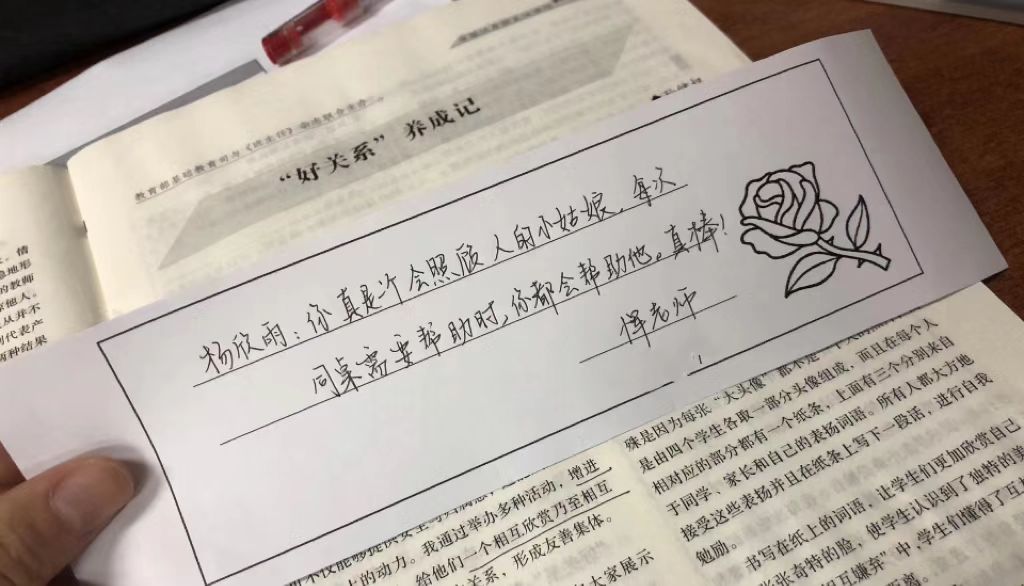 教育部基础教育司与《班主任》杂志联合主办
“好关系”养成记
杨欣雨：你真是个会照顾人的小姑娘，每次
同桌需要帮助时，你都会帮助他。真棒！
恽老师
情
地形
的教师
他人。
从并不
代表产
种结果
殊是因为每张“大头像”都不是一
是由四个学生各取一部分头像组成，而且在每个人
相对应的部分都有一个纸条，上面有三个分别来自
于同学、家长和自己的表扬词语。所有人都大方地
接受这些表扬并且在纸条上写下一段话，进行自我
勉励。
书写在纸上的词语，让学生们更加欣赏自己
张奇特的脸，使学生认识到了独特的美
互嫌弃”中，学生们懂得了互
的动力。我通过举办多种活动，增进
给他们一个相互欣赏乃至相互
关系，形成友善集体。
大家展示